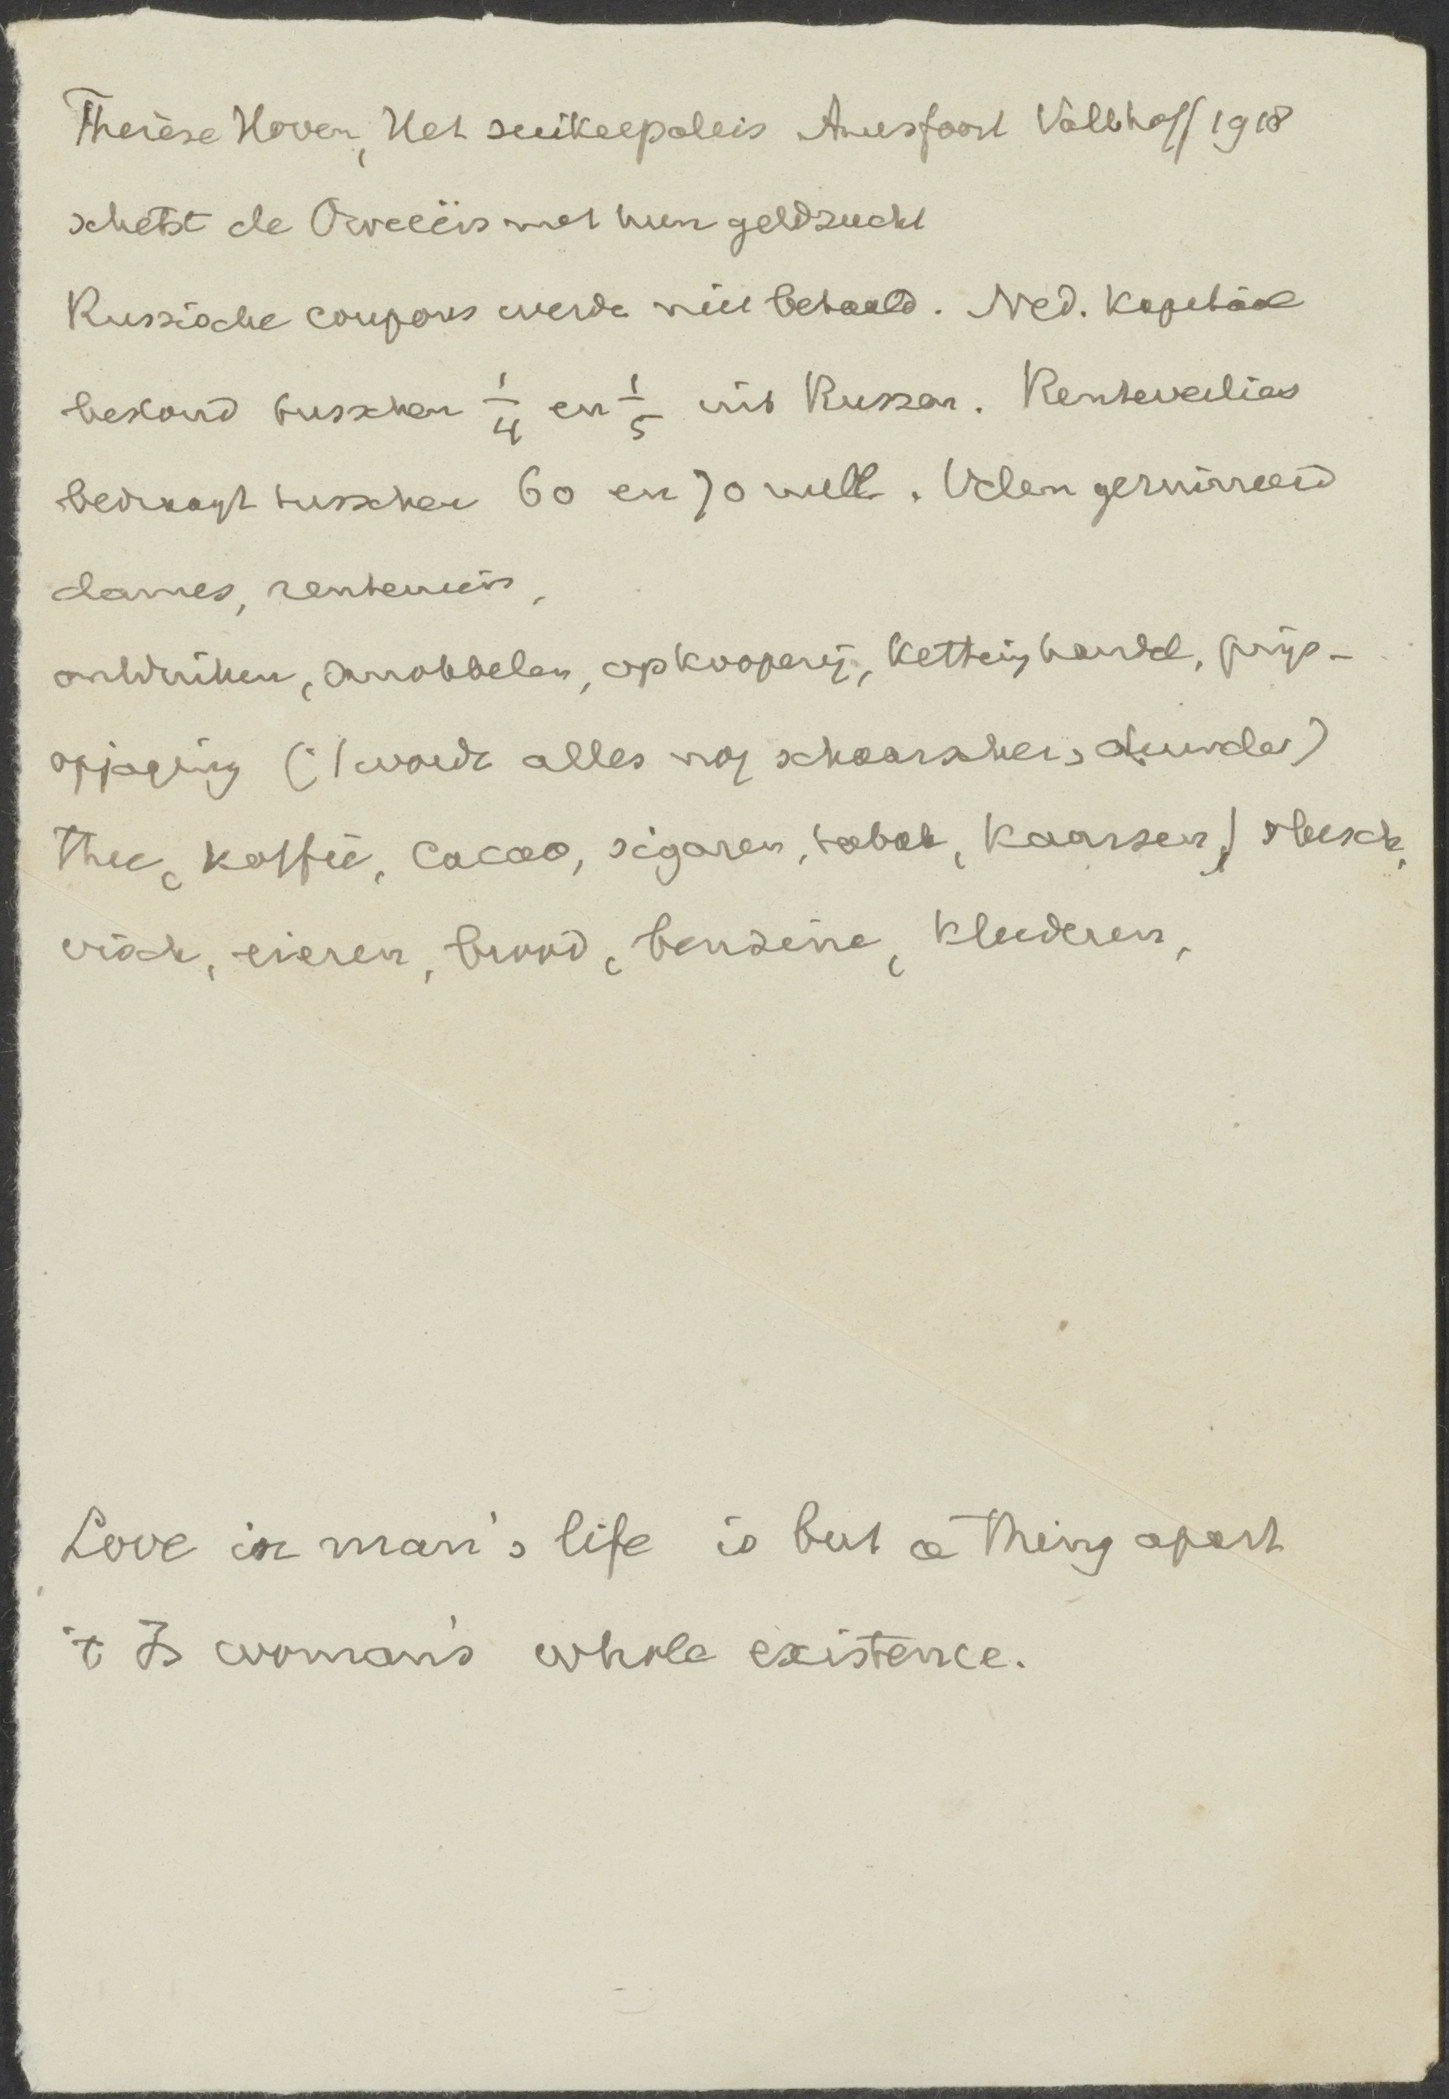 Therèse Hoven, Het suikerpaleis Amersfoort Valkhoff 1918
schetst de Oweeërs met hun geldzucht
Russische coupons werden niet betaald. Ned. Kapitaal
bestond tusschen 1/4 en 1/5 uit Russen. Renteverlies
bedraagt tusschen 60 en 70 mill. Velen geruineerd
dames, renteniers,
ontduiken, smokkelen, opkooperij, kettinghandel, prijs-
opjaging (: / wordt alles nog schaarscher, duurder)
thee, koffie, cacao, sigaren, tabak, kaarsen, vleesch,
visch, eieren, brood, benzine, kleederen,
Love in man's life is but a thing apart
it Is woman's whole existence.